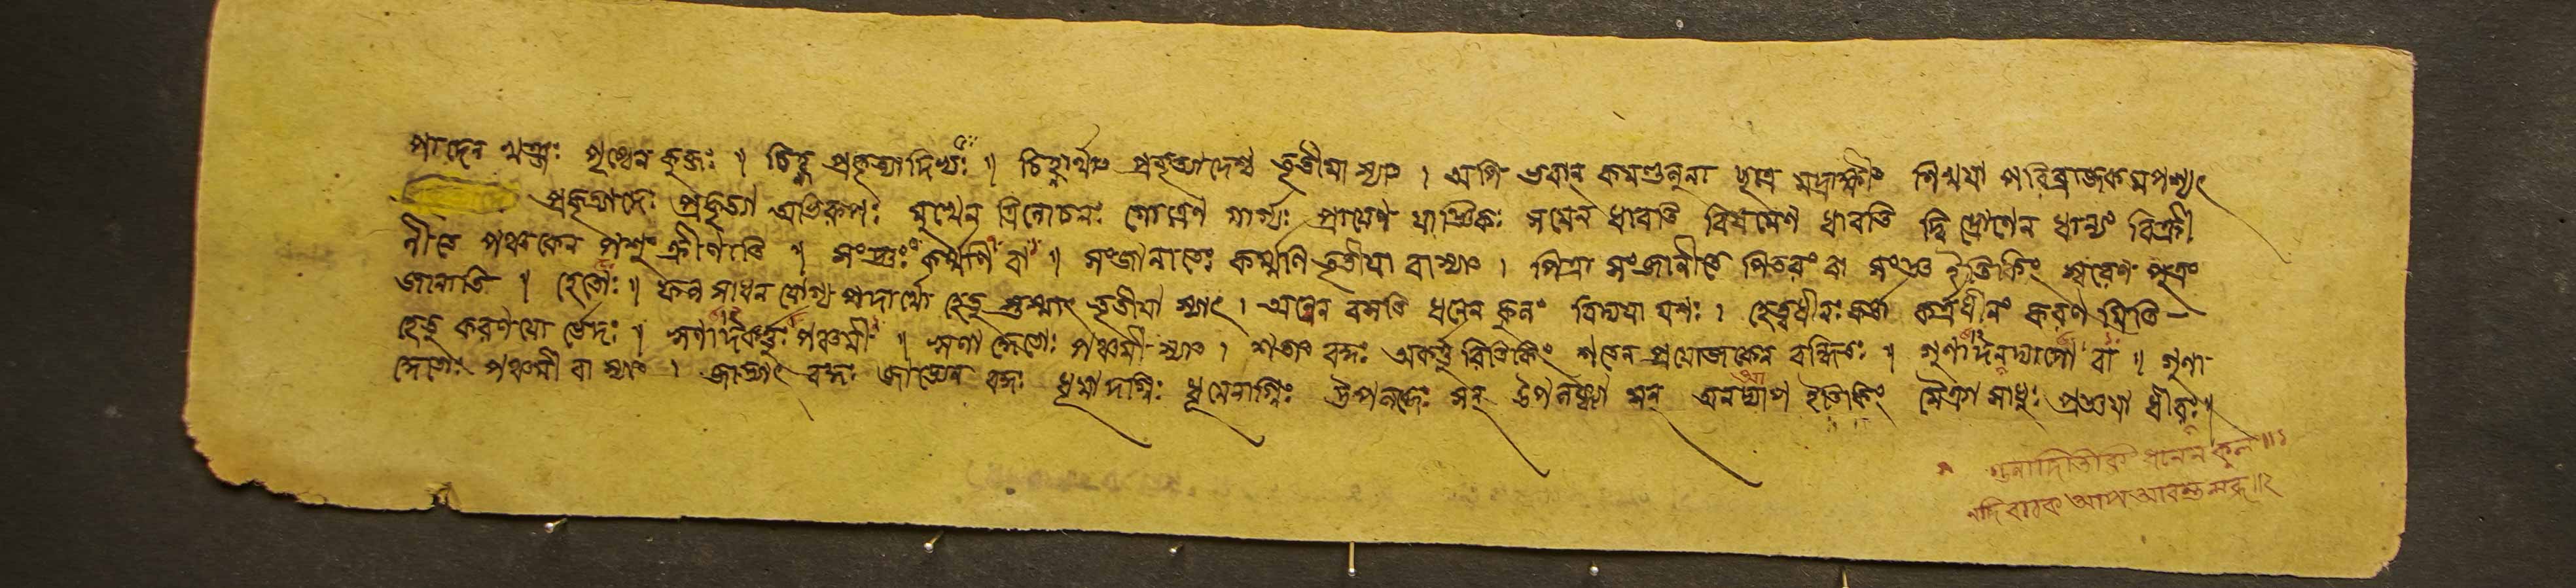 পাদেন খঞ্জঃ পৃষ্ঠেন কুব্জঃ ॥ চিহ্ন প্রকৃত্যাদিভ্যঃ ॥ চিহ্নার্থাৎ প্রকৃত্যাদেশ্চ তৃতীয়া স্যাৎ । অপি ভবান্ কমণ্ডলুনা ছাত্র মদ্রাক্ষীৎ শিখয়া পরিব্রাজকমপশ্যৎ
প্রকৃত্যাদেঃ প্রকৃত্যা অভিরূপঃ মুখেন ত্রিলোচনঃ গোত্রেণ গার্গ্যঃ প্রায়েণ যাজ্ঞিকঃ সমেন ধাবতি বিষমেণ ধাবতি দ্বি দ্রোণেন ধান্যং বিক্রী
নীতে পঞ্চকেন পশুং ক্রীণাতি ॥ সংজ্ঞঃ কর্ম্মণি বা ॥ সংজানাতেঃ কর্ম্মণি তৃতীয়া বাস্যাৎ । পিত্রা সংজানীতে পিতরং বা সংজ্ঞ ইতিকিং স্বরেণ পুত্রং
জানাতি ॥ হেতৌঃ ॥ ফল সাধন যোগ্য পদার্থো হেতু স্তস্মাৎ তৃতীয়া স্যাৎ । অন্নেন বসতি ধনেন কুলং বিদ্যয়া যশঃ । হেত্বধীনঃ কর্ত্তা কর্ত্রধীনং করণ মিতি
হেতু করণয়ো র্ভেদঃ ॥ ঋণাদকর্ত্তুঃ পঞ্চমী ॥ ঋণা দ্ধেতোঃ পঞ্চমী স্যাৎ । শতাৎ বদ্ধঃ অকর্ত্তু রিতিকিং শতেন প্রযোজকেন বন্ধিতঃ ॥ গুণাদনাপো বা ॥ গুণা
দ্ধেতোঃ পঞ্চমী বা স্যাৎ । জাড্যাৎ বদ্ধঃ জাড্যেন বদ্ধঃ ধূমাদগ্নিঃ ধূমেনাগ্নিঃ উপলব্ধেঃ সন্ উপলব্ধ্যা সন্ অনাপ ইতিকিং মৈত্র্যা সাধুঃ প্রজ্ঞয়া ধীরঃ ॥
ধনেন কুল ॥১